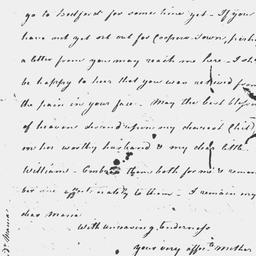 go to Bedford for some time yet - If your
have not yet set out for Coopers Town, perhaps
a letter from you may reach me here - I sh
be happy to hear that you was relieved from
the pain in your face. May the best bless
of heaven descend upon my dearest Child
on her worthy husband & my dear little
William - Embrace them both for me & remem
ber me affectionately to them - I remain my
dear Maria
With unceasing tenderness
Your very affec. Mother
Maria